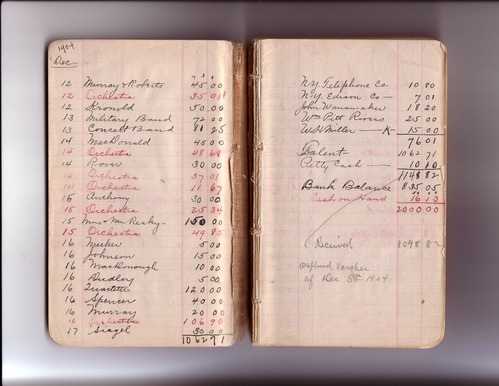 1904
Dec
12 Murray & Roberts 45 00
12 Orchestra 35 01
12 Kronold 50 00
13 Military Band 72 00
13 Concert Band 81 25
14 MacDonald 45 00
14 Orchestra 48 68
14 Roow 30 00
14 Orchestra 37 01
14 Orchestra 11 67
15 Anthony 30 00
15 Orchestra 25 34
15 Miss & Mr 150 00
15 Orchestra 49 85
16 Meeker 5 00
16 Johnson 15 00
16 MacDonough 10 00
16 Dudley 5 00
16 Quartette 120 00
16 Spencer 40 00
16 Murray 20 00
16 Orchestra 106 90
17 Slagel 30 00
1062 71
N.Y. Telephone Co. 10 80
N.Y. Edison Co — 7 01
John Wanamaker 18 20
Wm Pitt Rivers 25 00
W.H. Miller — K 15 00
76 01
Talent 1062 71
Petty Cash 10 10
1148 82
Bank Balance 835 05
Cash on Hand 16 13
2000 00
Received 1098 82
Voucher
of Dec 8th 1904